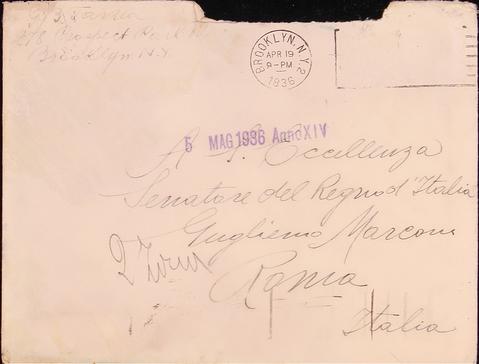 Prospect Park W
Brooklyn N.Y.
BROOKLYN, N.Y. 2
APR 19
8-PM
1936
5 MAG 1936 Anno XIV
A S. Eccellenza
Senatore del Regno d'Italia
Guglielmo Marconi
Roma
Italia